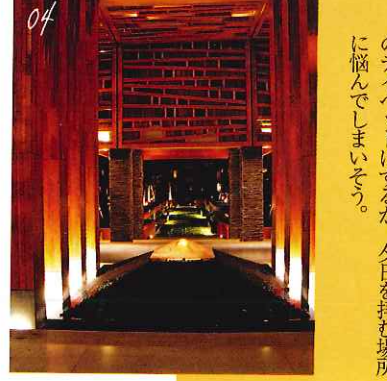 04
にするか、夕日を拝む場所
に悩んでしまいそう。